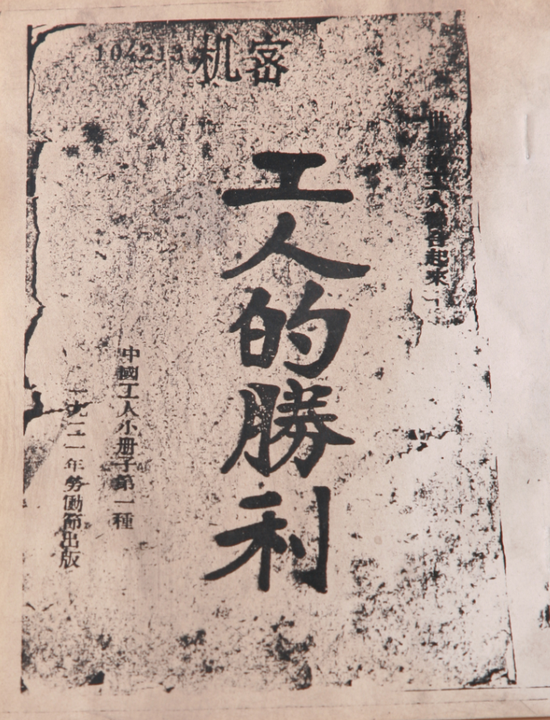 机密
工人聯合起來
工人的勝利
中國工人小册子第一種
一九二一年勞働節出版